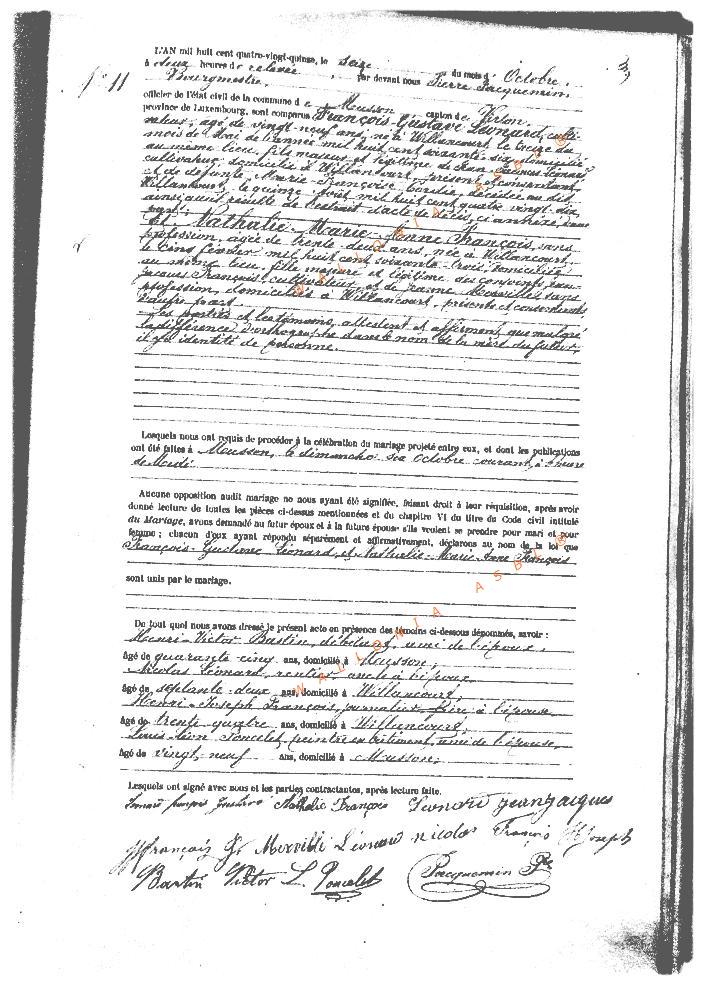 3
N° 11
L'AN mil huit cent quatre-vingt-quinze, le seize du mois d'Octobre,
à deux heures de relevée, par devant nous Pierre Jacquemin,
Bourgmestre,
officier de l'état civil de la commune de Musson, canton de Virton,
province de Luxembourg, sont comparus François-Gustave Léonard, culti-
vateur, âgé de vingt-neuf ans, né à Willancourt, le treize du
mois de Mai de l'année mil huit cent soixante-six, domicilié
au même lieu, fils majeur et légitime de Jean-Jacques Léonard
cultivateur, domicilié à Willancourt, présent et consentant,
et de défunte Marie-Françoise décédée au dit
Willancourt, le quinze Août mil huit cent quatre-vingt-dix,
ainsi qu'il résulte de l'extrait d'acte de décès, ci-annexé, d'une
part;
Et Nathalie-Marie-Anne François, sans
profession, âgée de trente-deux ans, née à Willancourt,
le cinq février mil huit cent soixante-trois, domiciliée
au même lieu, fille majeure et légitime des conjoints Jean-
Jacques François, cultivateur, et de Jeanne sans
profession, domiciliés à Willancourt, présents et consentants
d'autre part.
Les parties et les témoins, attestent et affirment, que malgré
la différence d'orthographe dans le nom de la mère du futur,
il y a identité de personne.
Lesquels nous ont requis de procéder à la célébration du mariage projeté entre eux, et dont les publications
ont été faites à Musson, le dimanche six Octobre courant, à heure
de Midi
Aucune opposition audit mariage ne nous ayant été signifiée, faisant droit à leur réquisition, après avoir
donné lecture de toutes les pièces ci-dessus mentionnées et du chapitre VI du titre du Code civil intitulé
du Mariage, avons demandé au futur époux et à la future épouse s'ils veulent se prendre pour mari et pour
femme; chacun d'eux ayant répondu séparément et affirmativement, déclarons au nom de la loi que
François-Gustave Léonard, et Nathalie-Marie-Anne François
sont unis par le mariage.
De tout quoi nous avons dressé le présent acte en présence des témoins ci-dessous dénommés, savoir:
Henri-Victor Bastin, ami de l'époux,
âgé de quarante-cinq ans, domicilié à Musson;
Nicolas Léonard, rentier oncle à l'époux
âgé de septante-deux ans, domicilié à Willancourt;
Henri-Joseph François, journalier frère à l'épouse
âgé de trente-quatre ans, domicilié à Willancourt;
Louis-Léon Poncelet, peintre en bâtiment, ami de l'épouse,
âgé de vingt-neuf ans, domicilié à Musson;
Lesquels ont signé avec nous et les parties contractantes, après lecture faite.
Léonard françois Gustave Nathalie François Léonard jean jacques
JJ françois J. Merveille Léonard nicolas François H Joseph
Bastin Victor L. Poncelet Jacquemin P
WALLONIA ASBL
WALLONIA ASBL